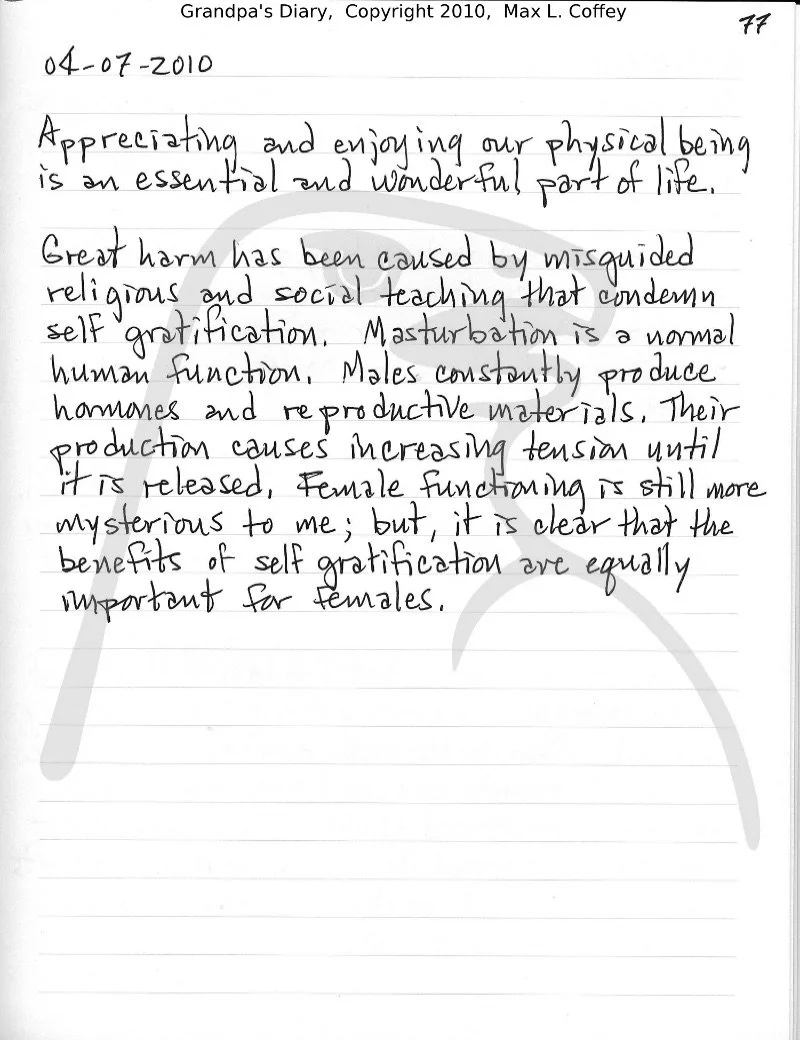 Grandpa's Diary, Copyright 2010, Max L. Coffey
77
04-07-2010
Appreciating and enjoying our physical being
is an essential and wonderful part of life.
Great harm has been caused by misguided
religious and social teaching that condemn
self gratification. Masturbation is a normal
human function. Males constantly produce
hormones and reproductive materials. Their
production causes increasing tension until
it is released. Female functioning is still more
mysterious to me; but, it is clear that the
benefits of self gratification are equally
important for females.